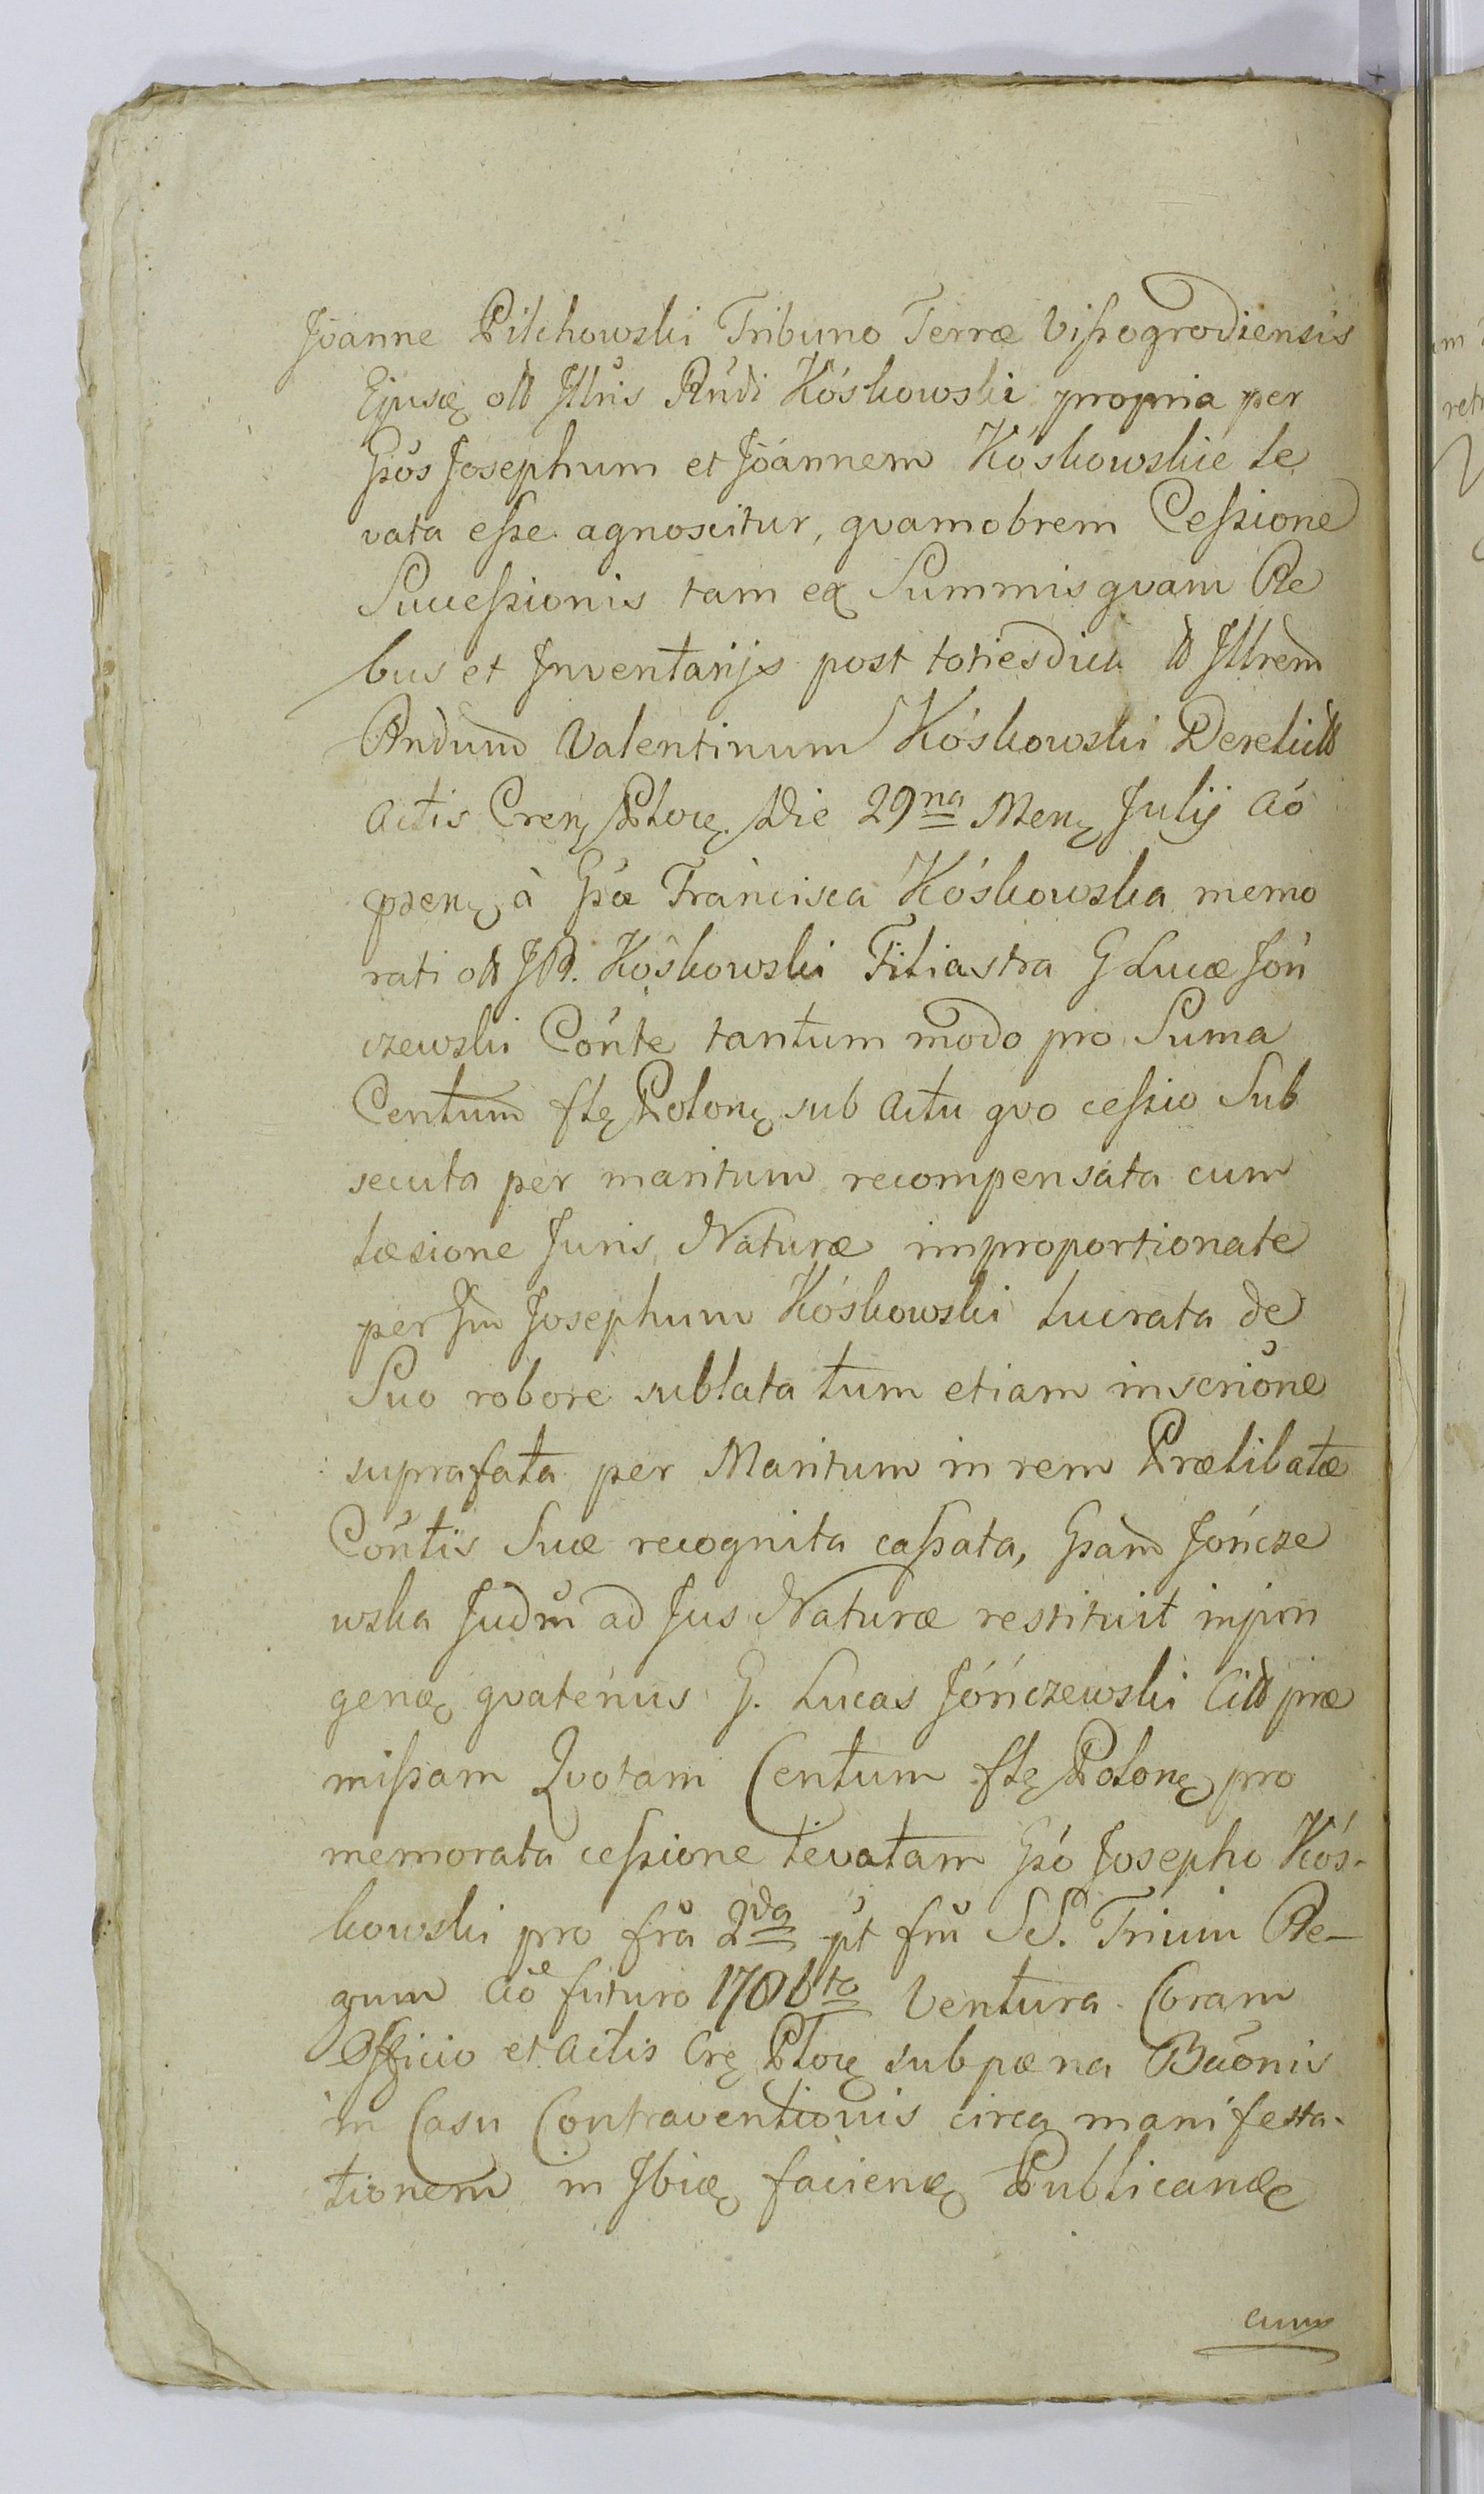 Joanne Pilchowski Tribuno Terræ Vissogrodiensis
Ejusą olł Jllris Rndi Kóskowski propria per
Gsos Josephum et Joannem Kóskowskie le
vata esse agnoscitur, qvamobrem Cessione
Successionis tam ex Summis qvam Re
bus et Jnventarijs post totiesdicti Jllrem
Rndum Valentinum Kóskowski Derelict
actis Cren Ploc. Die 29na Men Julij Aõ
præn à Gsa Francisca Kóskowska memo
rati ol JR. Kóskowski Filiastra G Lucæ Jón
czewski Cónte tantum modo pro Suma
Centum fl Polon sub actu qvo cessio Sub
secuta per maritum recompensata cum
læsione Juris Naturæ improportionate
per Gm Josephum Kóskowski lucrata de
Suo robore sublata tum etiam inscrione
suprafata per Maritum in rem Prælibatæ
Cóntis Suæ recognita cassata, Gsam Jóncze
wska Judm ad Jus Naturæ restituit injun
gen qvatenus G. Lucas Jónczewski Citt præ
missam Qvotam Centum fl Polon pro
memorata cessione levatam Gso Josepho Kós-
kowski pro fra 2da pt frm SS. Trium Re-
gum Aõ futuro 1786to Ventura Coram
Officio et Actis Cr Ploc sub pæna Baõnis
in Casu Contraventionis circa manifesta-
tionem in Jbi facien Publican
cum